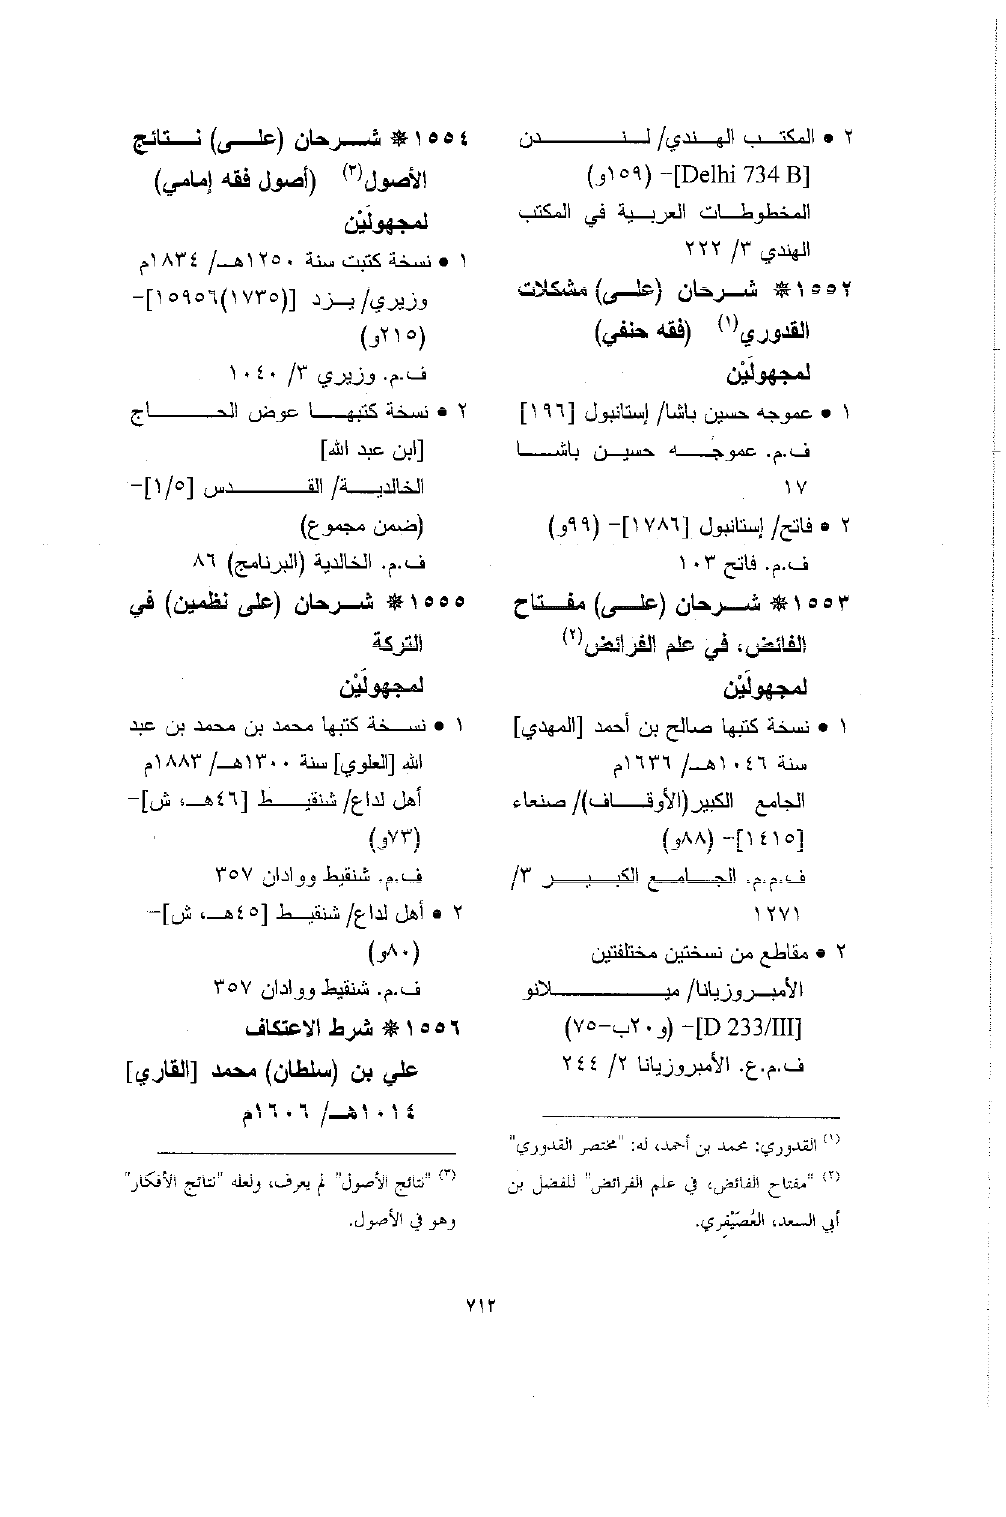 ٢ • المكتب الهندي/ لندن
[Delhi 734 B]- (١٥٩و)
المخطوطات العربية في المكتب
الهندي ٣/ ٢٢٢
١٥٥٢* شرحان (على) مشكلات
القدوري(١) (فقه حنفي)
لمجهولَيْن
١ • عموجه حسين باشا/ إستانبول [١٩٦]
ف.م. عموجه حسين باشا
١٧
٢ • فاتح/ إستانبول [١٧٨٦]- (٩٩و)
ف.م. فاتح ١٠٣
١٥٥٣* شرحان (على) مفتاح
الفائض، في علم الفرائض(٢)
لمجهولَيْن
١ • نسخة كتبها صالح بن أحمد [المهدي]
سنة ١٠٤٦هـ/ ١٦٣٦م
الجامع الكبير (الأوقاف)/ صنعاء
[١٤١٥]- (٨٨و)
ف.م.م. الجامع الكبير ٣/
١٢٧١
٢ • مقاطع من نسختين مختلفتين
الأمبروزيانا/ ميلانو
[D 233/III]- (و٢٠ب-٧٥)
ف.م.ع. الأمبروزيانا ٢/ ٢٤٤
(١) القدوري: محمد بن أحمد، له: "مختصر القدوري"
(٢) "مفتاح الفائض، في علم الفرائض" للفضل بن
أبي السعد، العُصَيْفِري.
١٥٥٤* شرحان (على) نتائج
الأصول(٣) (أصول فقه إمامي)
لمجهولَيْن
١ • نسخة كتبت سنة ١٢٥٠هـ/ ١٨٣٤م
وزيري/ يزد [(١٧٣٥)١٥٩٥٦]-
(٢١٥و)
ف.م. وزيري ٣/ ١٠٤٠
٢ • نسخة كتبها عوض الحاج
[ابن عبد الله]
الخالدية/ القدس [١/٥]-
(ضمن مجموع)
ف.م. الخالدية (البرنامج) ٨٦
١٥٥٥* شرحان (على نظمين) في
التركة
لمجهولَيْن
١ • نسخة كتبها محمد بن محمد بن عبد
الله [العلوي] سنة ١٣٠٠هـ/ ١٨٨٣م
أهل لداع/ شنقيط [٤٦هـ، ش]-
(٧٣و)
ف.م. شنقيط ووادان ٣٥٧
٢ • أهل لداع/ شنقيط [٤٥هـ، ش]-
(٨٠و)
ف.م. شنقيط ووادان ٣٥٧
١٥٥٦* شرط الاعتكاف
علي بن (سلطان) محمد [القاري]
١٠١٤هـ/ ١٦٠٦م
(٣) "نتائج الأصول" لم يعرف، ولعله "نتائج الأفكار"
وهو في الأصول.
٧١٢